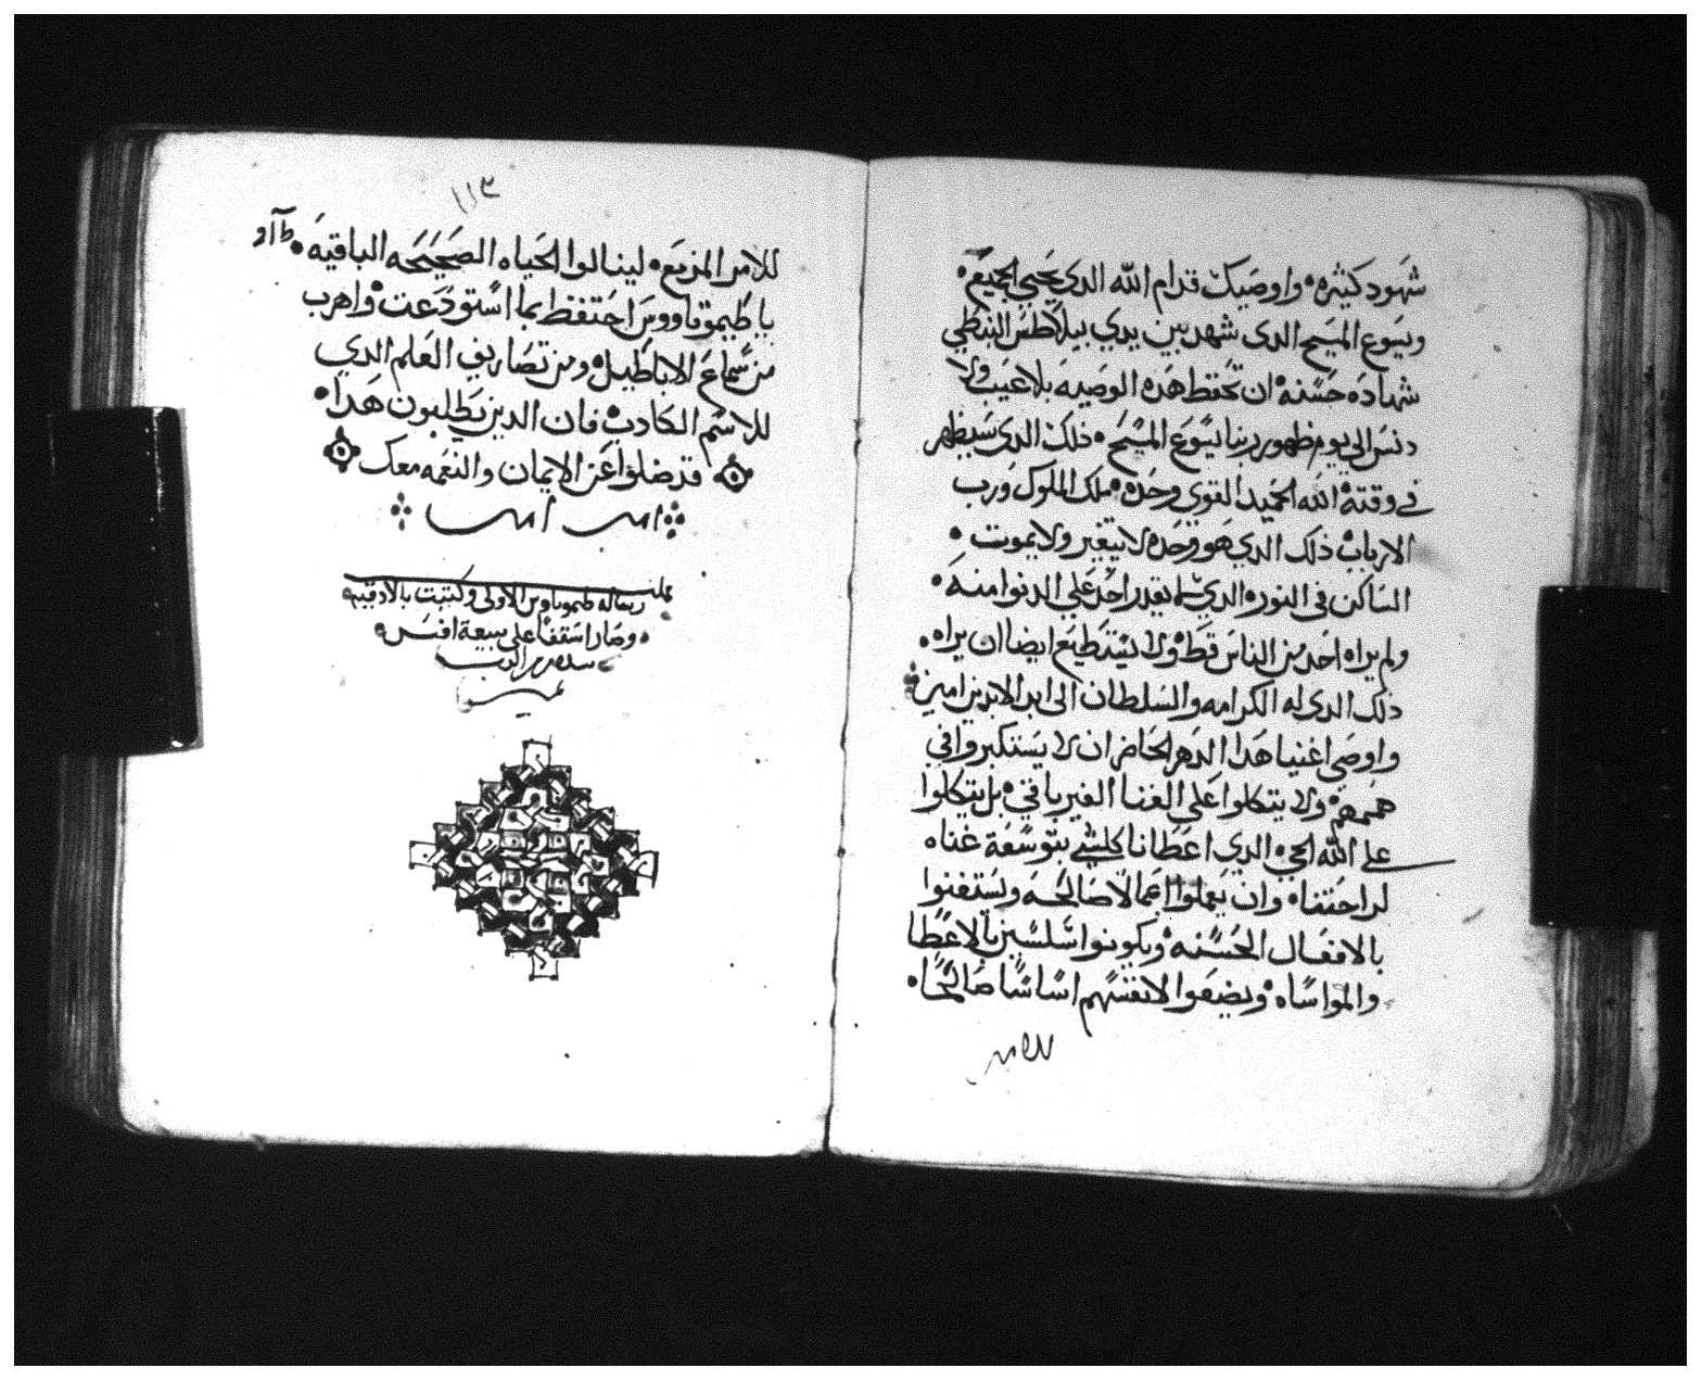 شهود كثيره واوصيك قدام الله الدي يحيي الجميع
ويسوع المسيح الدى شهد بين يدي بيلاطس النبطي
شهاده حسنه ان تحتفظ هده الوصيه بلا عيب ولا
دنس الى يوم ظهور ربنا يسوع المسيح ذلك الدى سيظهر
في وقته الله الحميد القوي وحده ملك الملوك ورب
الارباب ذلك الدي هو وحده لا يتغير ولا يموت
الساكن في النور الدي لم يقدر احد علي الدنوا منه
ولم يراه احد من الناس قط ولا يستطيع ايضا ان يراه
ذلك الدى له الكرامه والسلطان الى ابد الابدين امين
واوصي اغنيا هدا الدهر الحاضر ان لا يستكبروا في
هممهم ولا يتكلوا على الغنا الغير باقي بل يتكلوا
على الله الحي الدي اعطانا كلشي بتوسعة غناه
لراحتنا وان يعملوا اعمالا صالحه ويستغنوا
بالافعال الحسنه ويكونوا سلسين بالاعطا
والمواساه ويضعوا لانفسهم اساسا صالحا
١١٣
للامر المزمع لينالوا الحياه الصحيحه الباقيه
يا طيموتاووس احتفظ بما استودعت واهرب
من سماع الاباطيل ومن تصاريف العلم الدي
للاسم الكادب فان الدين يطلبون هدا
قد ضلوا عن الايمان والنعمه معك
امين امين
كملت
رساله طيموتاوس الاولى وكتبت بالادقيه
وصار اسقفا على بيعة افسس